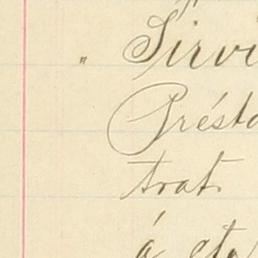 " Sirvi
Présta
trat.
á eta